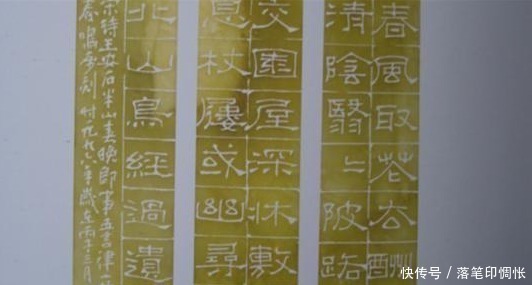 春風取花去酬
清陰翳〻陂路
交園屋深休敷
息杖屨或幽尋
北山鳥經過遺
宋詩王安石半山春晚即事五言律一
刻 时一九九六年歲在丙子三月
快传号 / 落笔印惆怅